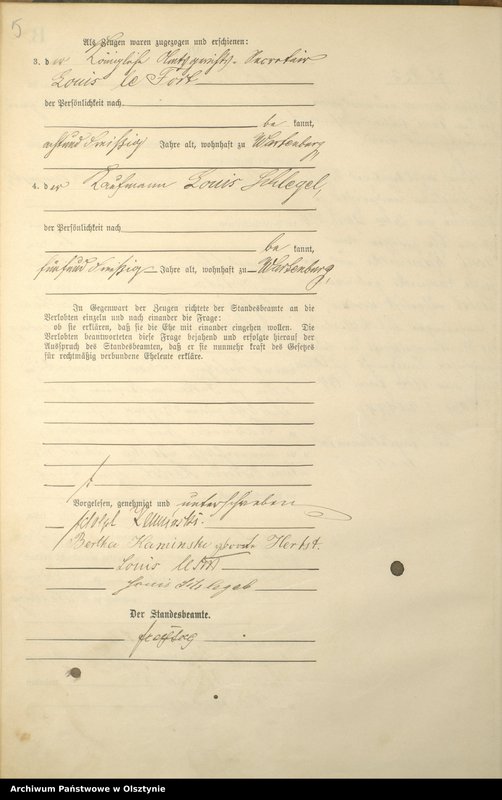 5
Als Zeugen waren zugezogen und erschienen:
3. der Königliche Amtsgerichts-Secretair
Louis le Fort
der Persönlichkeit nach
be kannt,
achtunddreißig Jahre alt, wohnhaft zu Wartenburg,
4. der Kaufmann Louis Schlegel,
der Persönlichkeit nach
be kannt,
fünfunddreißig Jahre alt, wohnhaft zu Wartenburg,
In Gegenwart der Zeugen richtete der Standesbeamte an die
Verlobten einzeln und nach einander die Frage:
ob sie erklären, daß sie die Ehe mit einander eingehen wollen. Die
Verlobten beantworteten diese Frage bejahend und erfolgte hierauf der
Ausspruch des Standesbeamten, daß er sie nunmehr kraft des Gesetzes
für rechtmäßig verbundene Eheleute erkläre.
Vorgelesen, genehmigt und unterschrieben
Adolph Kaminski.
Bertha Kaminski geborene Herbst.
Louis le Fort
Louis Schlegel
Der Standesbeamte.
Freytag
Archiwum Państwowe w Olsztynie